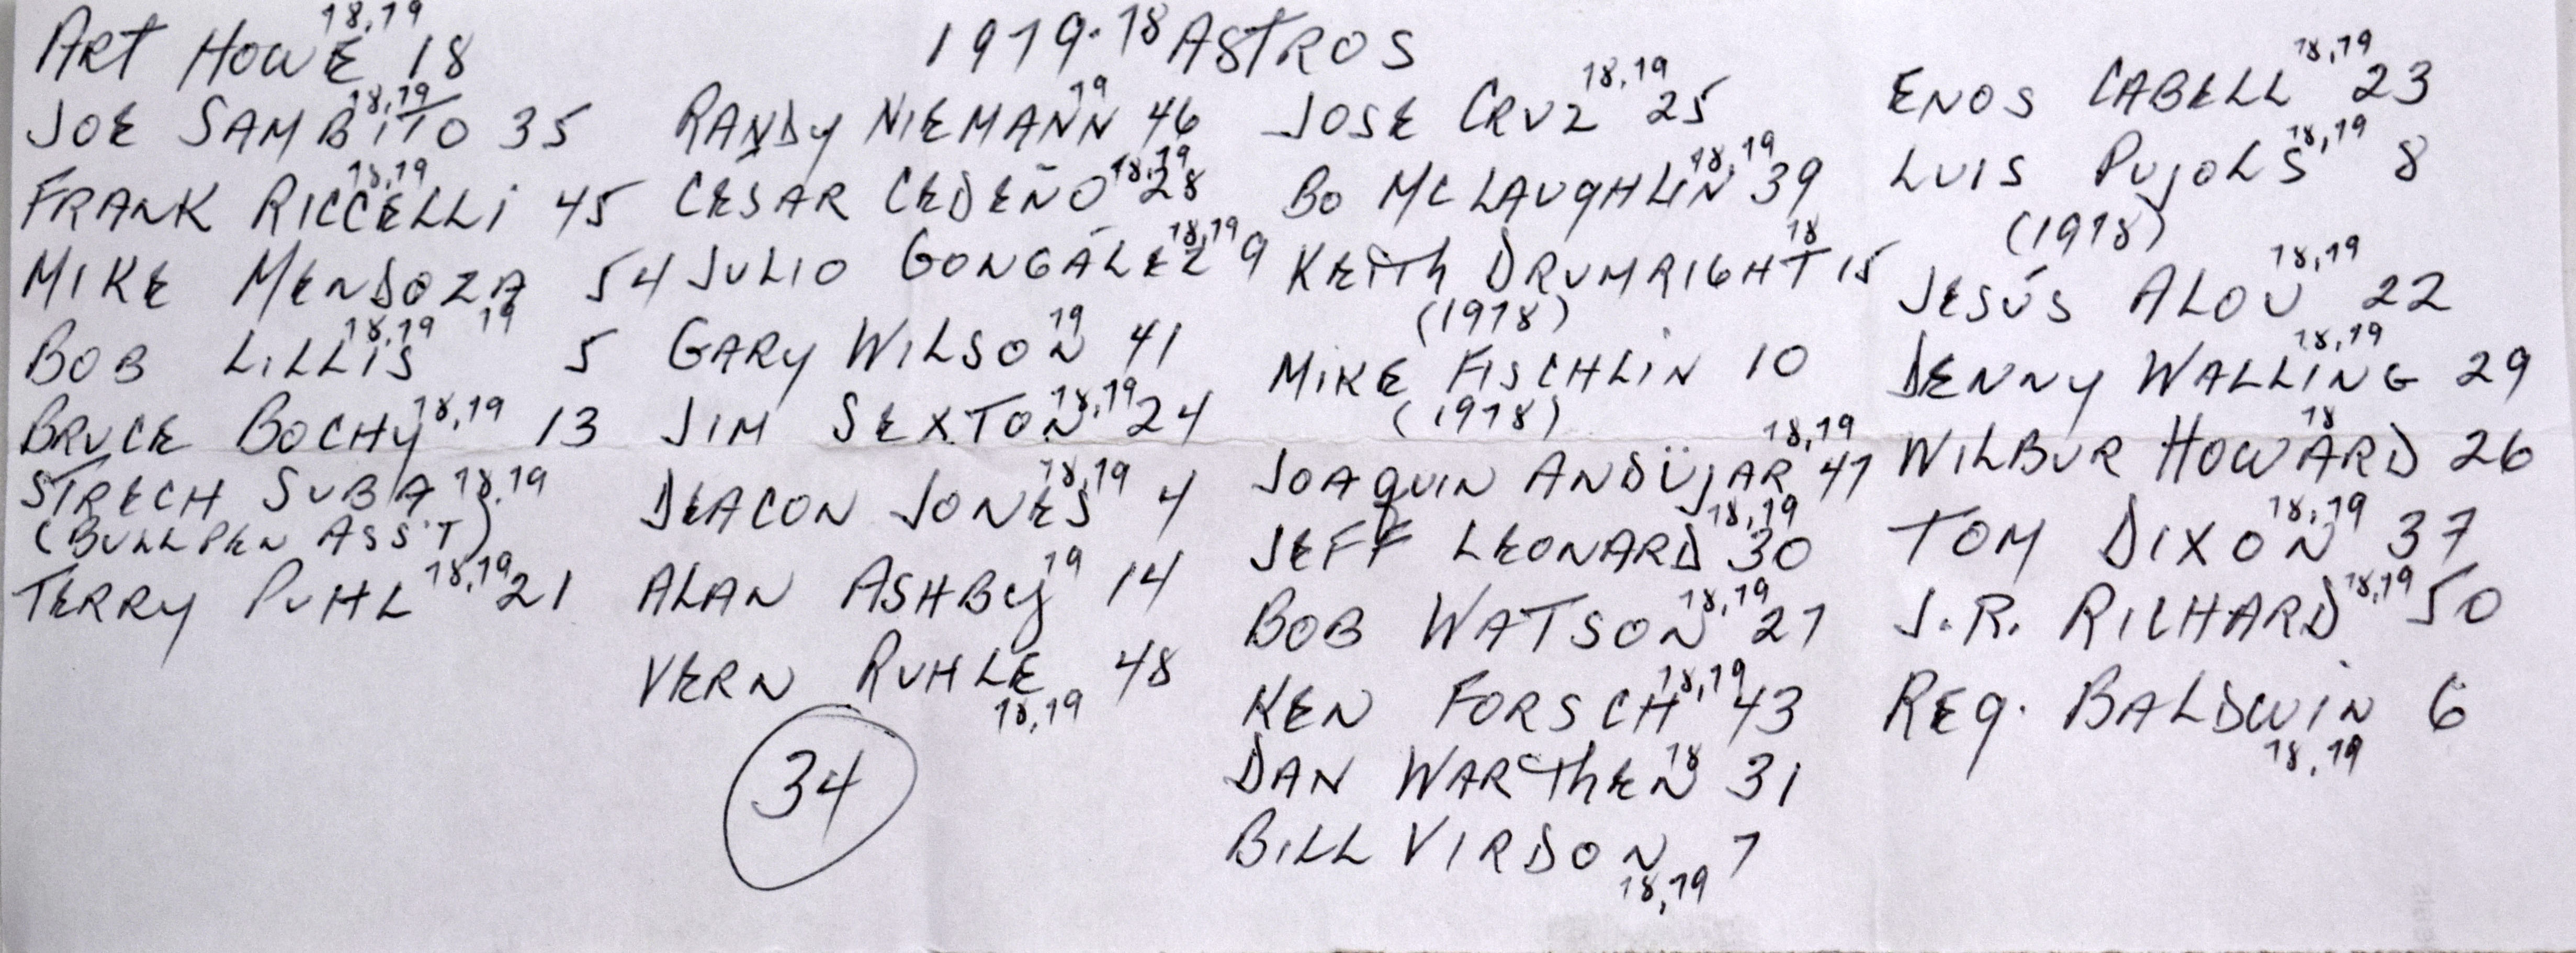 1979·78 ASTROS
ART HOWE 78,79 18
JOE SAMBITO 78,79 35
FRANK RICCELLI 78,79 45
MIKE MENDOZA 79 54
BOB LILLIS 78,79 5
BRUCE BOCHY 78,79 13
STRECH SUBA 78,79
(BULLPEN ASS'T)
TERRY PUHL 78,79 21
RANDY NIEMANN 79 46
CESAR CEDEÑO 78,79 28
JULIO GONGÁLEZ 78,79 9
GARY WILSON 79 41
JIM SEXTON 78,79 24
DEACON JONES 78,79 4
ALAN ASHBY 79 14
VERN RUHLE 48
78,79
34
JOSE CRUZ 78,79 25
BO MCLAUGHLIN 78,79 39
KEITH DRUMRIGHT 78 15
(1978)
MIKE FISCHLIN 10
(1978)
JOAQUIN ANDÜJAR 78,79 47
JEFF LEONARD 78,79 30
BOB WATSON 78,79 27
KEN FORSCH 78,79 43
DAN WARTHEN 78 31
BILL VIRDON 7
78,79
ENOS CABELL 78,79 23
LUIS PUJOLS 78,79 8
(1978)
JESÚS ALOU 78,79 22
DENNY WALLING 78,79 29
WILBUR HOWARD 78 26
TOM DIXON 78,79 37
J.R. RICHARD 78,79 50
REG. BALDWIN 6
78,79